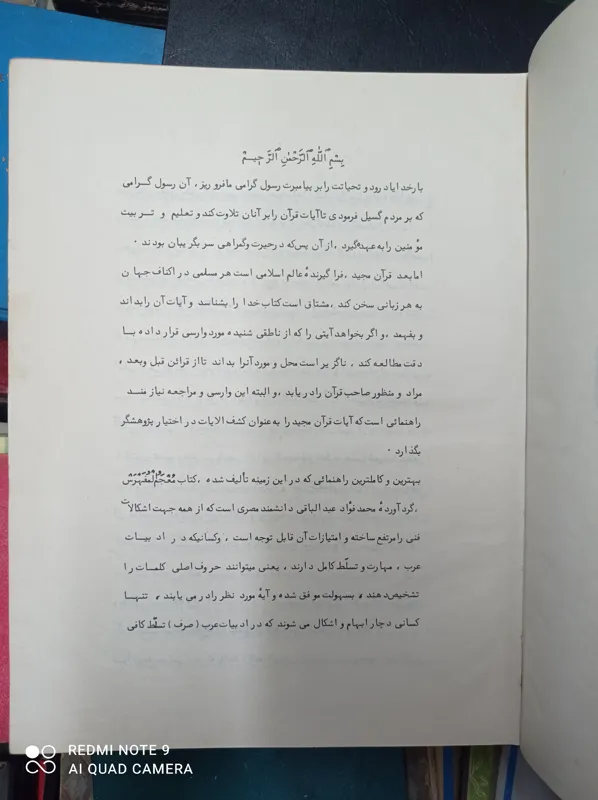 بِسْمِ ٱللَّهِ ٱلرَّحْمٰنِ ٱلرَّحِيمْ
بارخدایا درود و تحیاتت را بر پیامبرت رسول گرامی ما فرو ریز ، آن رسول گرامی
که بر مردم گسیل فرمودی تا آیات قرآن را بر آنان تلاوت کند و تعلیم و تربیت
مؤمنین را به عهده گیرد ، از آن پس که در حیرت و گمراهی سر بگریبان بودند .
اما بعد قرآن مجید ، فرا گیرندهٔ عالم اسلامی است هر مسلمی در اکناف جهان
به هر زبانی سخن کند ، مشتاق است کتاب خدا را بشناسد و آیات آن را بداند
و بفهمد ، و اگر بخواهد آیتی را که از ناطقی شنیده مورد وارسی قرار داده با
دقت مطالعه کند ، ناگزیر است محل و مورد آنرا بداند تا از قرائن قبل و بعد ،
مراد و منظور صاحب قرآن را دریابد ، و البته این وارسی و مراجعه نیازمند
راهنمائی است که آیات قرآن مجید را به عنوان کشف الایات در اختیار پژوهشگر
بگذارد .
بهترین و کاملترین راهنمائی که در این زمینه تألیف شده ، کتاب مُعْجَمُ المُفَهْرَسْ
، گردآوردهٔ محمد فؤاد عبدالباقی دانشمند مصری است که از همه جهت اشکالات
فنی را مرتفع ساخته و امتیازات آن قابل توجه است ، و کسانیکه در ادبیات
عرب ، مهارت و تسلّط کامل دارند ، یعنی میتوانند حروف اصلی کلمات را
تشخیص دهند ، بسهولت موفق شده و آیهٔ مورد نظر را در می یابند ، تنها
کسانی دچار ابهام و اشکال می شوند که در ادبیات عرب ( صرف ) تسلّط کافی
REDMI NOTE 9
AI QUAD CAMERA